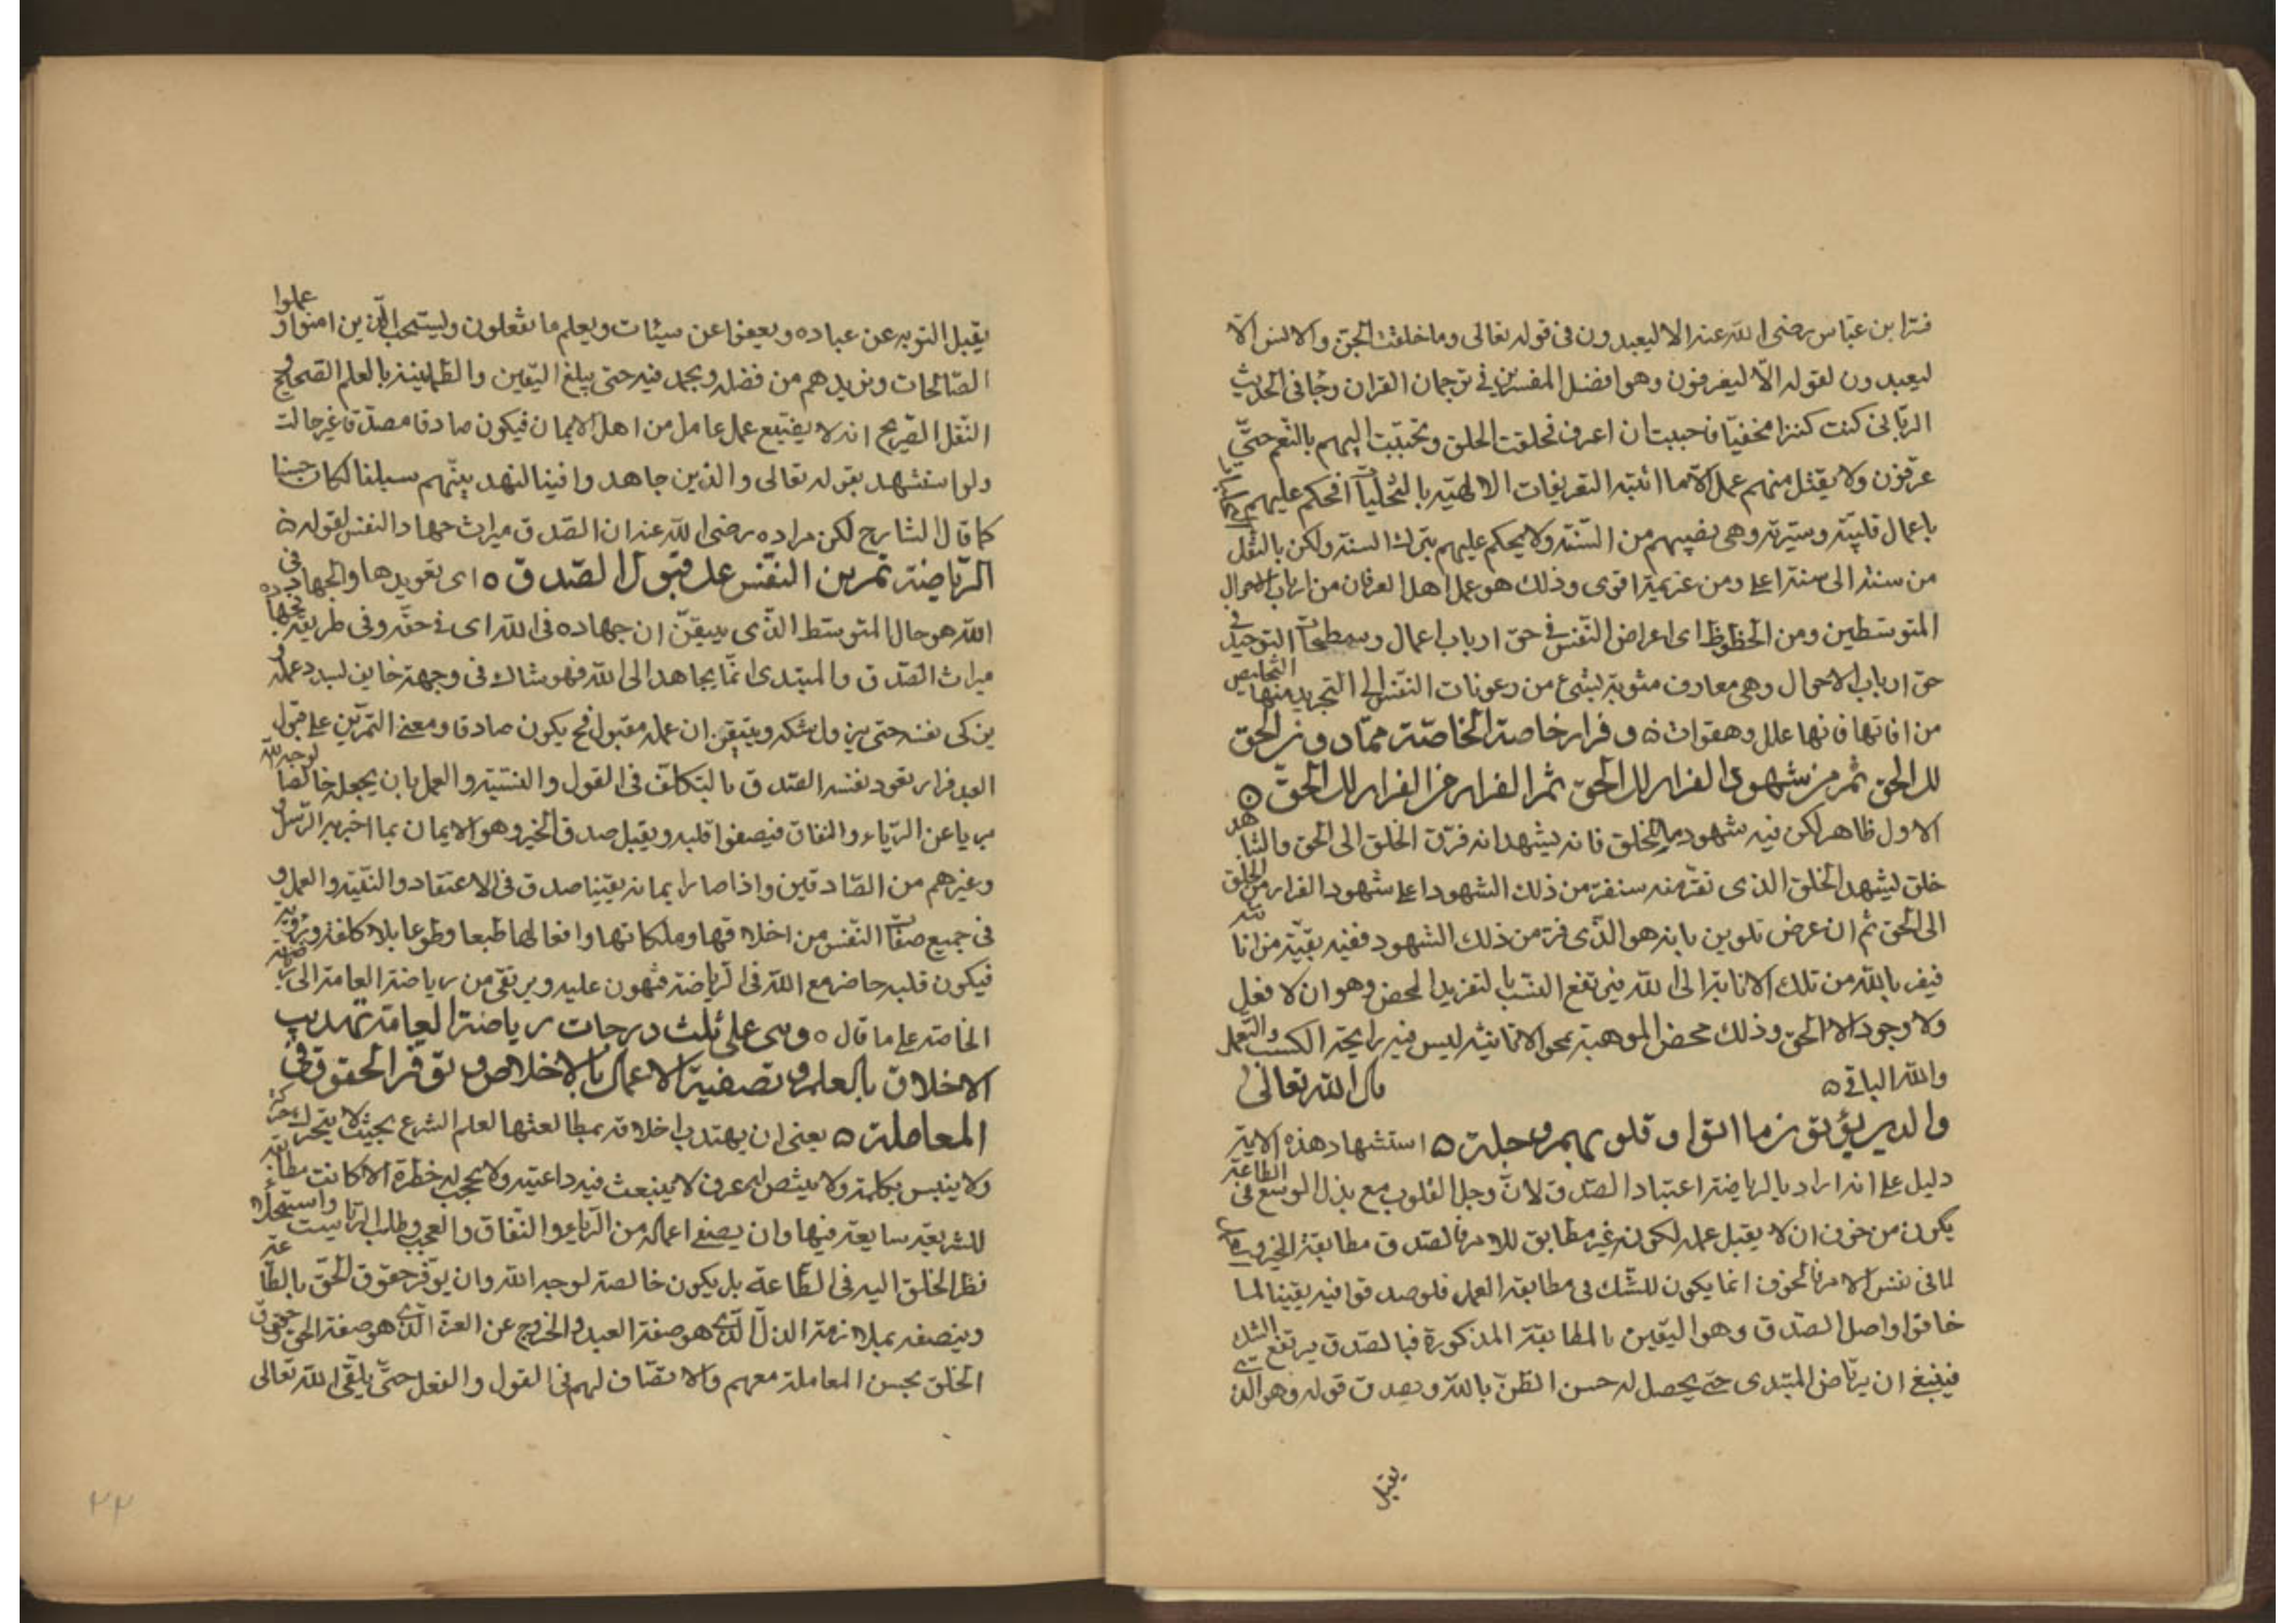 فسر ابن عباس رضى الله عنه الا ليعبدون فى قوله تعالى وما خلقت الجن والانس الا
ليعبدون لقوله الا ليعرفون وهو افضل المفسرين فى ترجمان القران وجا فى الحديث
الربانى كنت كنزا مخفيا فاحببت ان اعرف فخلقت الخلق وتحببت اليهم بالنعم حتى
عرفون ولا يقتل منهم عمل الا ما اثبته التعريفات الالهية بالتجليات افحكم عليهم
باعمال قلبية وسيرته وهى نصيبهم من السنة ولا يحكم عليهم بترك السنة ولكن بالنقل
من سنة الى سنة اعلى ومن عزيمة اقوى وذلك هو عمل اهل العرفان من ارباب الاحوال
المتوسطين ومن الحظوظ اى اعراض النفس فى حق ارباب اعمال وسطحات التوحيد فى
حق ارباب الاحوال وهى معارف مشوبة بشئ من رعونات النفس الى التجريد منها التخليص
من افاتها فانها علل وهفوات ۵ وفرار خاصة الخاصة مما دون الحق
الى الحق ثم من شهود الفرار الى الحق ثم الفرار من الفرار الى الحق ۵
الاول ظاهر لكن فيه شهود ما للخلق فانه يشهد انه فر من الخلق الى الحق والشاهد
خلق ليشهد الخلق الذى نفر منه سنفر من ذلك الشهود اعلى شهود الفرار من الخلق
الى الحق ثم ان عرض تلوين بانه هو الذى فر من ذلك الشهود ففيه بقية من انائيته
فيفر بالله من تلك الانائية الى الله فيرتفع النسب بالتفريد المحض وهو ان لا فعل
ولا وجود الا الحق وذلك محض الموهبة بمحو الانائية ليس فيه رايحة الكسب والتعمل
والله الباقى ۵ قال الله تعالى
والذين يؤتون ما اتوا وقلوبهم وجلة ۵ استشهاد هذه الاية
دليل على انه اراد بالرياضة اعتياد الصدق لان وجل القلوب مع بذل الوسع فى الطاعة
يكون من خوف ان لا يقبل عمله لكونه غير مطابق للامر فالصدق مطابقة الخير
لما فى نفس الامر فالخوف انما يكون للشك فى مطابقة العمل فلو صدقوا فيه يقينا لما
خافوا واصل الصدق وهو اليقين بالمطابقة المذكورة فبالصدق يرتفع الشك
فينبغى ان يرتاض المبتدى حتى يحصل له حسن الظن بالله ويصدق قوله وهو الذى
يقبل
يقبل التوبه عن عباده ويعفوا عن سيئات ويعلم ما تفعلون ويستجيب الذين امنوا وعملوا
الصالحات ونزيدهم من فضله ويجهد فيه حتى يبلغ اليقين والطمانينة بالعلم الصحيح و
النقل الصريح انه لا يضيع عمل عامل من اهل الايمان فيكون صادقا مصدقا غير حالت
ولو استشهد بقوله تعالى والذين جاهدوا فينا لنهدينهم سبلنا لكان حسنا
كما قال الشارح لكن مراده رضى الله عنه ان الصدق ميراث جهاد النفس لقوله ۵
الرياضة تمرين النفس على قبول الصدق ۵ اى تعويدها والجهاد فى
الله هو حال المتوسط الذى يتيقن ان جهاده فى الله اى فى حقه وفى طريقته
ميراث الصدق والمبتدى انما يجاهد الى الله فهو شاك فى وجهة خايف لسيد دعمله
يزكى نفسه حتى يزول شكه ويتيقن ان عمله مقبول فح يكون صادقا ومعنى التمرين على قبول
العبد فرار تعود نفسه الصدق بالتكلف فى القول والنية والعمل بان يجعله خالصا لوجه الله
بريا عن الرياء والنفاق فيصفوا قلبه ويقبل صدق الخير وهو الايمان بما اخبر به الرسل
وغيرهم من الصادقين واذا صار ايمانه يقينا صدق فى الاعتقاد والنية والعمل و
فى جميع صفات النفس من اخلاقها وملكاتها وافعالها طبعا وطوعا بلا كلفة وروية
فيكون قلبه حاضر مع الله فى الرياضة فتهون عليه ويرتقى من رياضة العامة الى رياضة
الخاصة على ما قال ۵ وهى على ثلث درجات رياضة العامة تهذيب
الاخلاق بالعلم وتصفية الاعمال بالاخلاص وتوفر الحقوق فى
المعاملة ۵ يعنى ان يهتدب اخلاقه بمطالعتها لعلم الشرع بحيث لا يتحرك حركة
ولا ينبس بكلمة ولا يشخص له عرف لا ينبعث فيه داعية ولا يحجب له خطرة الا كانت مطابقة
للشريعة سايغة فيها وان يصفى اعماله من الرياء والنفاق والعجب وطلب الرياست واستجلاء
نظر الخلق اليه فى الطاعة بل يكون خالصة لوجه الله وان يوفر حقوق الحق بالطاعة
وينصفه بملازمة الذل الذى هو صفة العبد والخروج عن العزة الذى هو صفة الحق حقوق
الخلق بحسن المعاملة معهم والانصاف لهم فى القول والفعل حتى يلقى الله تعالى